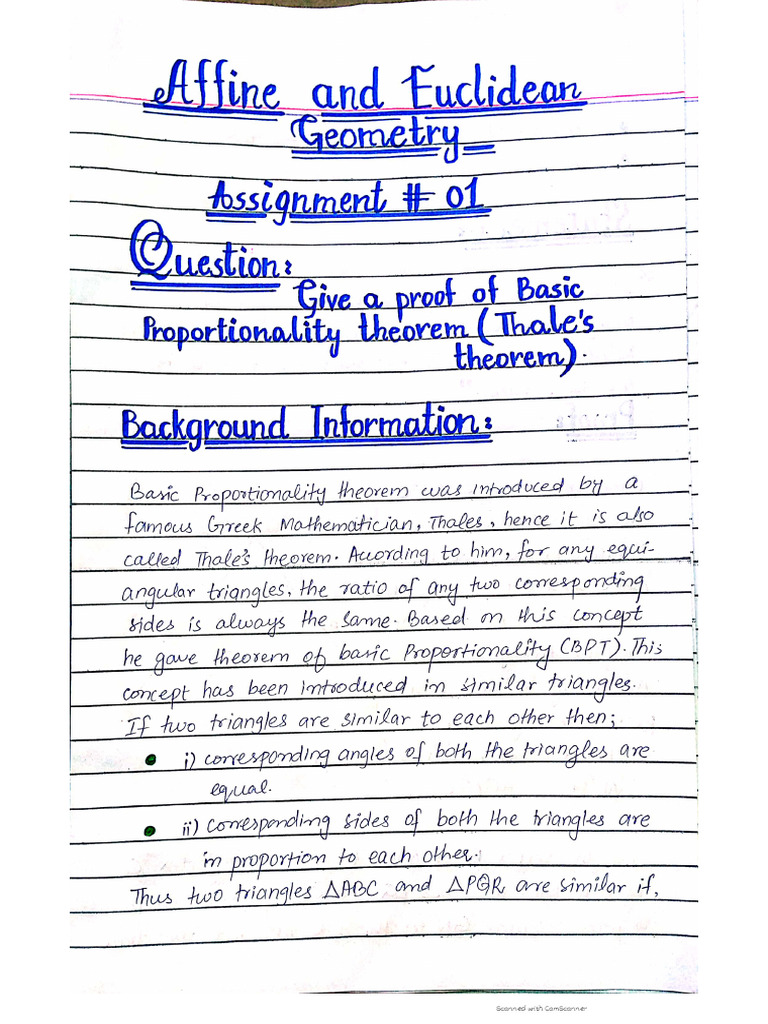 Affine and Euclidean
Geometry
Assignment # 01
Question:
Give a proof of Basic
Proportionality theorem (Thale's
theorem).
Background Information:
Basic Proportionality theorem was introduced by a
famous Greek Mathematician, Thales, hence it is also
called Thale's theorem. According to him, for any equi-
angular triangles, the ratio of any two corresponding
sides is always the same. Based on this concept
he gave theorem of basic Proportionality (BPT). This
concept has been introduced in similar triangles.
If two triangles are similar to each other then;
i) corresponding angles of both the triangles are
equal.
ii) corresponding sides of both the triangles are
in proportion to each other.
Thus two triangles △ABC and △PQR are similar if,
Scanned with CamScanner